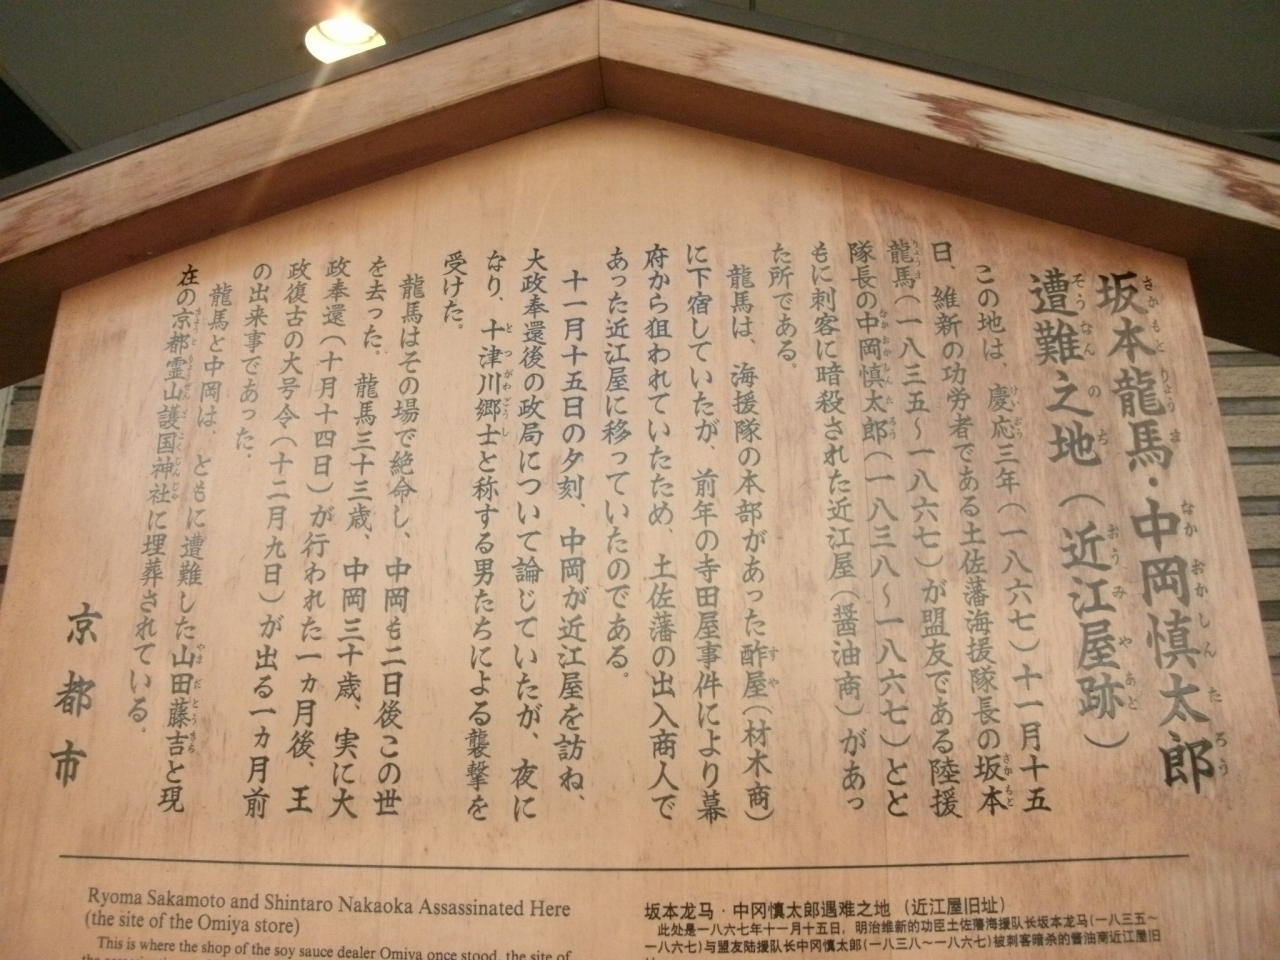 坂本龍馬・中岡慎太郎
遭難之地（近江屋跡）
この地は、慶応三年（一八六七）十一月十五
日、維新の功労者である土佐藩海援隊長の坂本
龍馬（一八三五～一八六七）が盟友である陸援
隊長の中岡慎太郎（一八三八～一八六七）とと
もに刺客に暗殺された近江屋（醤油商）があっ
た所である。
龍馬は、海援隊の本部があった酢屋（材木商）
に下宿していたが、前年の寺田屋事件により幕
府から狙われていたため、土佐藩の出入商人で
あった近江屋に移っていたのである。
十一月十五日の夕刻、中岡が近江屋を訪ね、
大政奉還後の政局について論じていたが、夜に
なり、十津川郷士と称する男たちによる襲撃を
受けた。
龍馬はその場で絶命し、中岡も二日後この世
を去った。龍馬三十三歳、中岡三十歳、実に大
政奉還（十月十四日）が行われた一カ月後、王
政復古の大号令（十二月九日）が出る一カ月前
の出来事であった。
龍馬と中岡は、ともに遭難した山田藤吉と現
在の京都霊山護国神社に埋葬されている。
京都市
Ryoma Sakamoto and Shintaro Nakaoka Assassinated Here
(the site of the Omiya store)
This is where the shop of the soy sauce dealer Omiya once stood, the site of
坂本龙马・中冈慎太郎遇难之地（近江屋旧址）
此处是一八六七年十一月十五日，明治维新的功臣土佐藩海援队长坂本龙马(一八三五～
一八六七)与盟友陆援队长中冈慎太郎(一八三八～一八六七)被刺客暗杀的酱油商近江屋旧